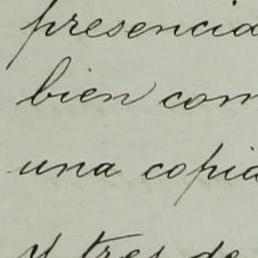 presencia
bien com
una copia
y tres de